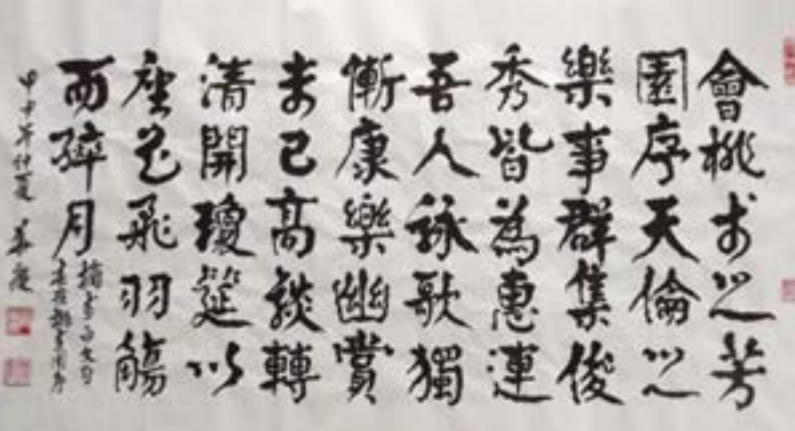 會桃李之芳
園序天倫之
樂事群集俊
秀皆為惠連
吾人詠歌獨
慚康樂幽賞
未已高談轉
清開瓊筵以
坐花飛羽觴
而醉月
摘李白文句
春夜桃李園序
甲申年仲夏